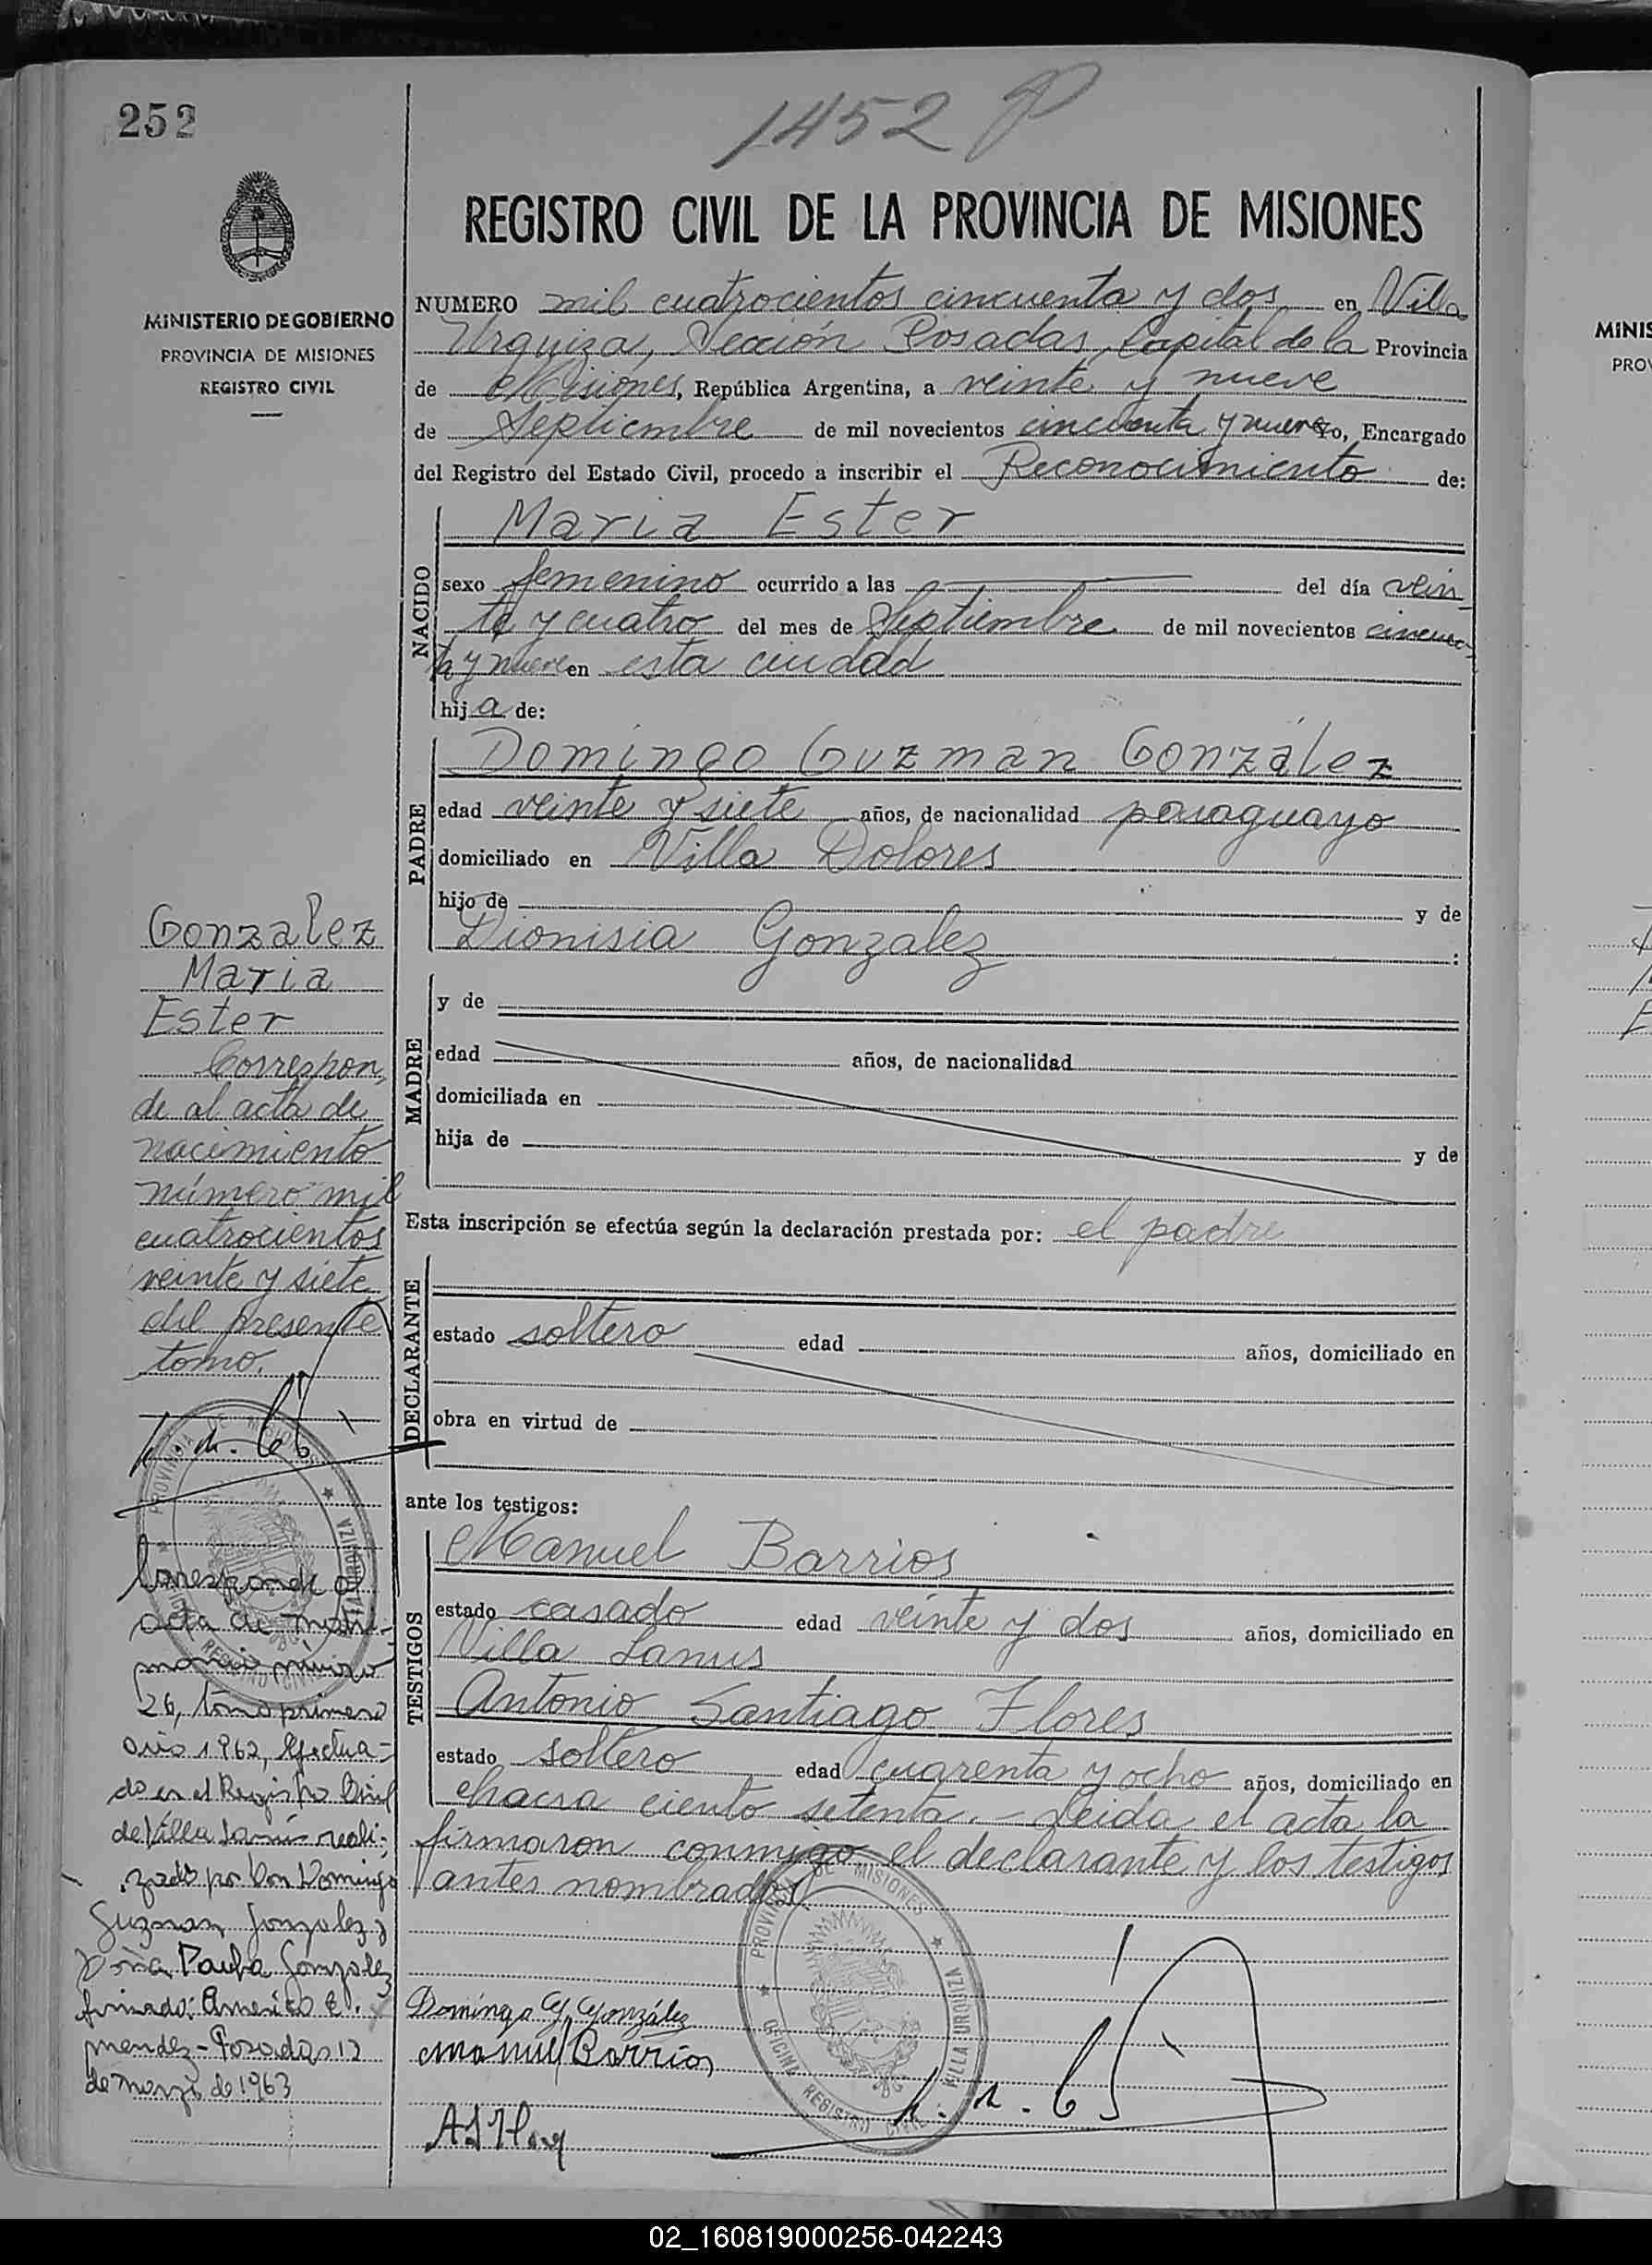 252
1452 P
REGISTRO CIVIL DE LA PROVINCIA DE MISIONES
MINISTERIO DE GOBIERNO
PROVINCIA DE MISIONES
REGISTRO CIVIL
NUMERO mil cuatrocientos cincuenta y dos en Villa
Urquiza, Sección Posadas, Capital de la Provincia
de Misiones, República Argentina, a veinte y nueve
de Septiembre de mil novecientos cincuenta y nueve yo, Encargado
del Registro del Estado Civil, procedo a inscribir el Reconocimiento de:
NACIDO
Maria Ester
sexo femenino ocurrido a las del día vein
te y cuatro del mes de Septiembre de mil novecientos cincuen
ta y nueve en esta ciudad
hij a de:
PADRE
Domingo Guzman González
edad veinte y siete años, de nacionalidad paraguayo
domiciliado en Villa Dolores
hijo de y de
Dionisia Gonzalez :
MADRE
y de
edad años, de nacionalidad
domiciliada en
hija de y de
Esta inscripción se efectúa según la declaración prestada por: el padre
DECLARANTE
estado soltero edad años, domiciliado en
obra en virtud de
ante los testigos:
TESTIGOS
Manuel Barrios
estado casado edad veinte y dos años, domiciliado en
Villa Lanus
Antonio Santiago Flores
estado soltero edad cuarenta y ocho años, domiciliado en
chacra ciento setenta. - Leida el acta la
firmaron conmigo el declarante y los testigos
antes nombrados
Domingo G González
Manuel Barrios
PROVINCIA DE MISIONES
VILLA URQUIZA
OFICINA REGISTRO CIVIL
Gonzalez
Maria
Ester
Correspon
de al acta de
nacimiento
número mil
cuatrocientos
veinte y siete
del presente
tomo.
PROVINCIA DE MISIONES
VILLA URQUIZA
REGISTRO CIVIL
Corresponde al
acta de matri-
monio número
26, tomo primero
año 1962, efectua-
do en el Registro Civil
de Villa Lanús reali-
zado por Don Domingo
Guzman Gonzalez y
Doña Paula Gonzalez
firmado: Americo E.
Mendez - Posadas 12
de marzo de 1963
MINIS
PROV
02_160819000256-042243